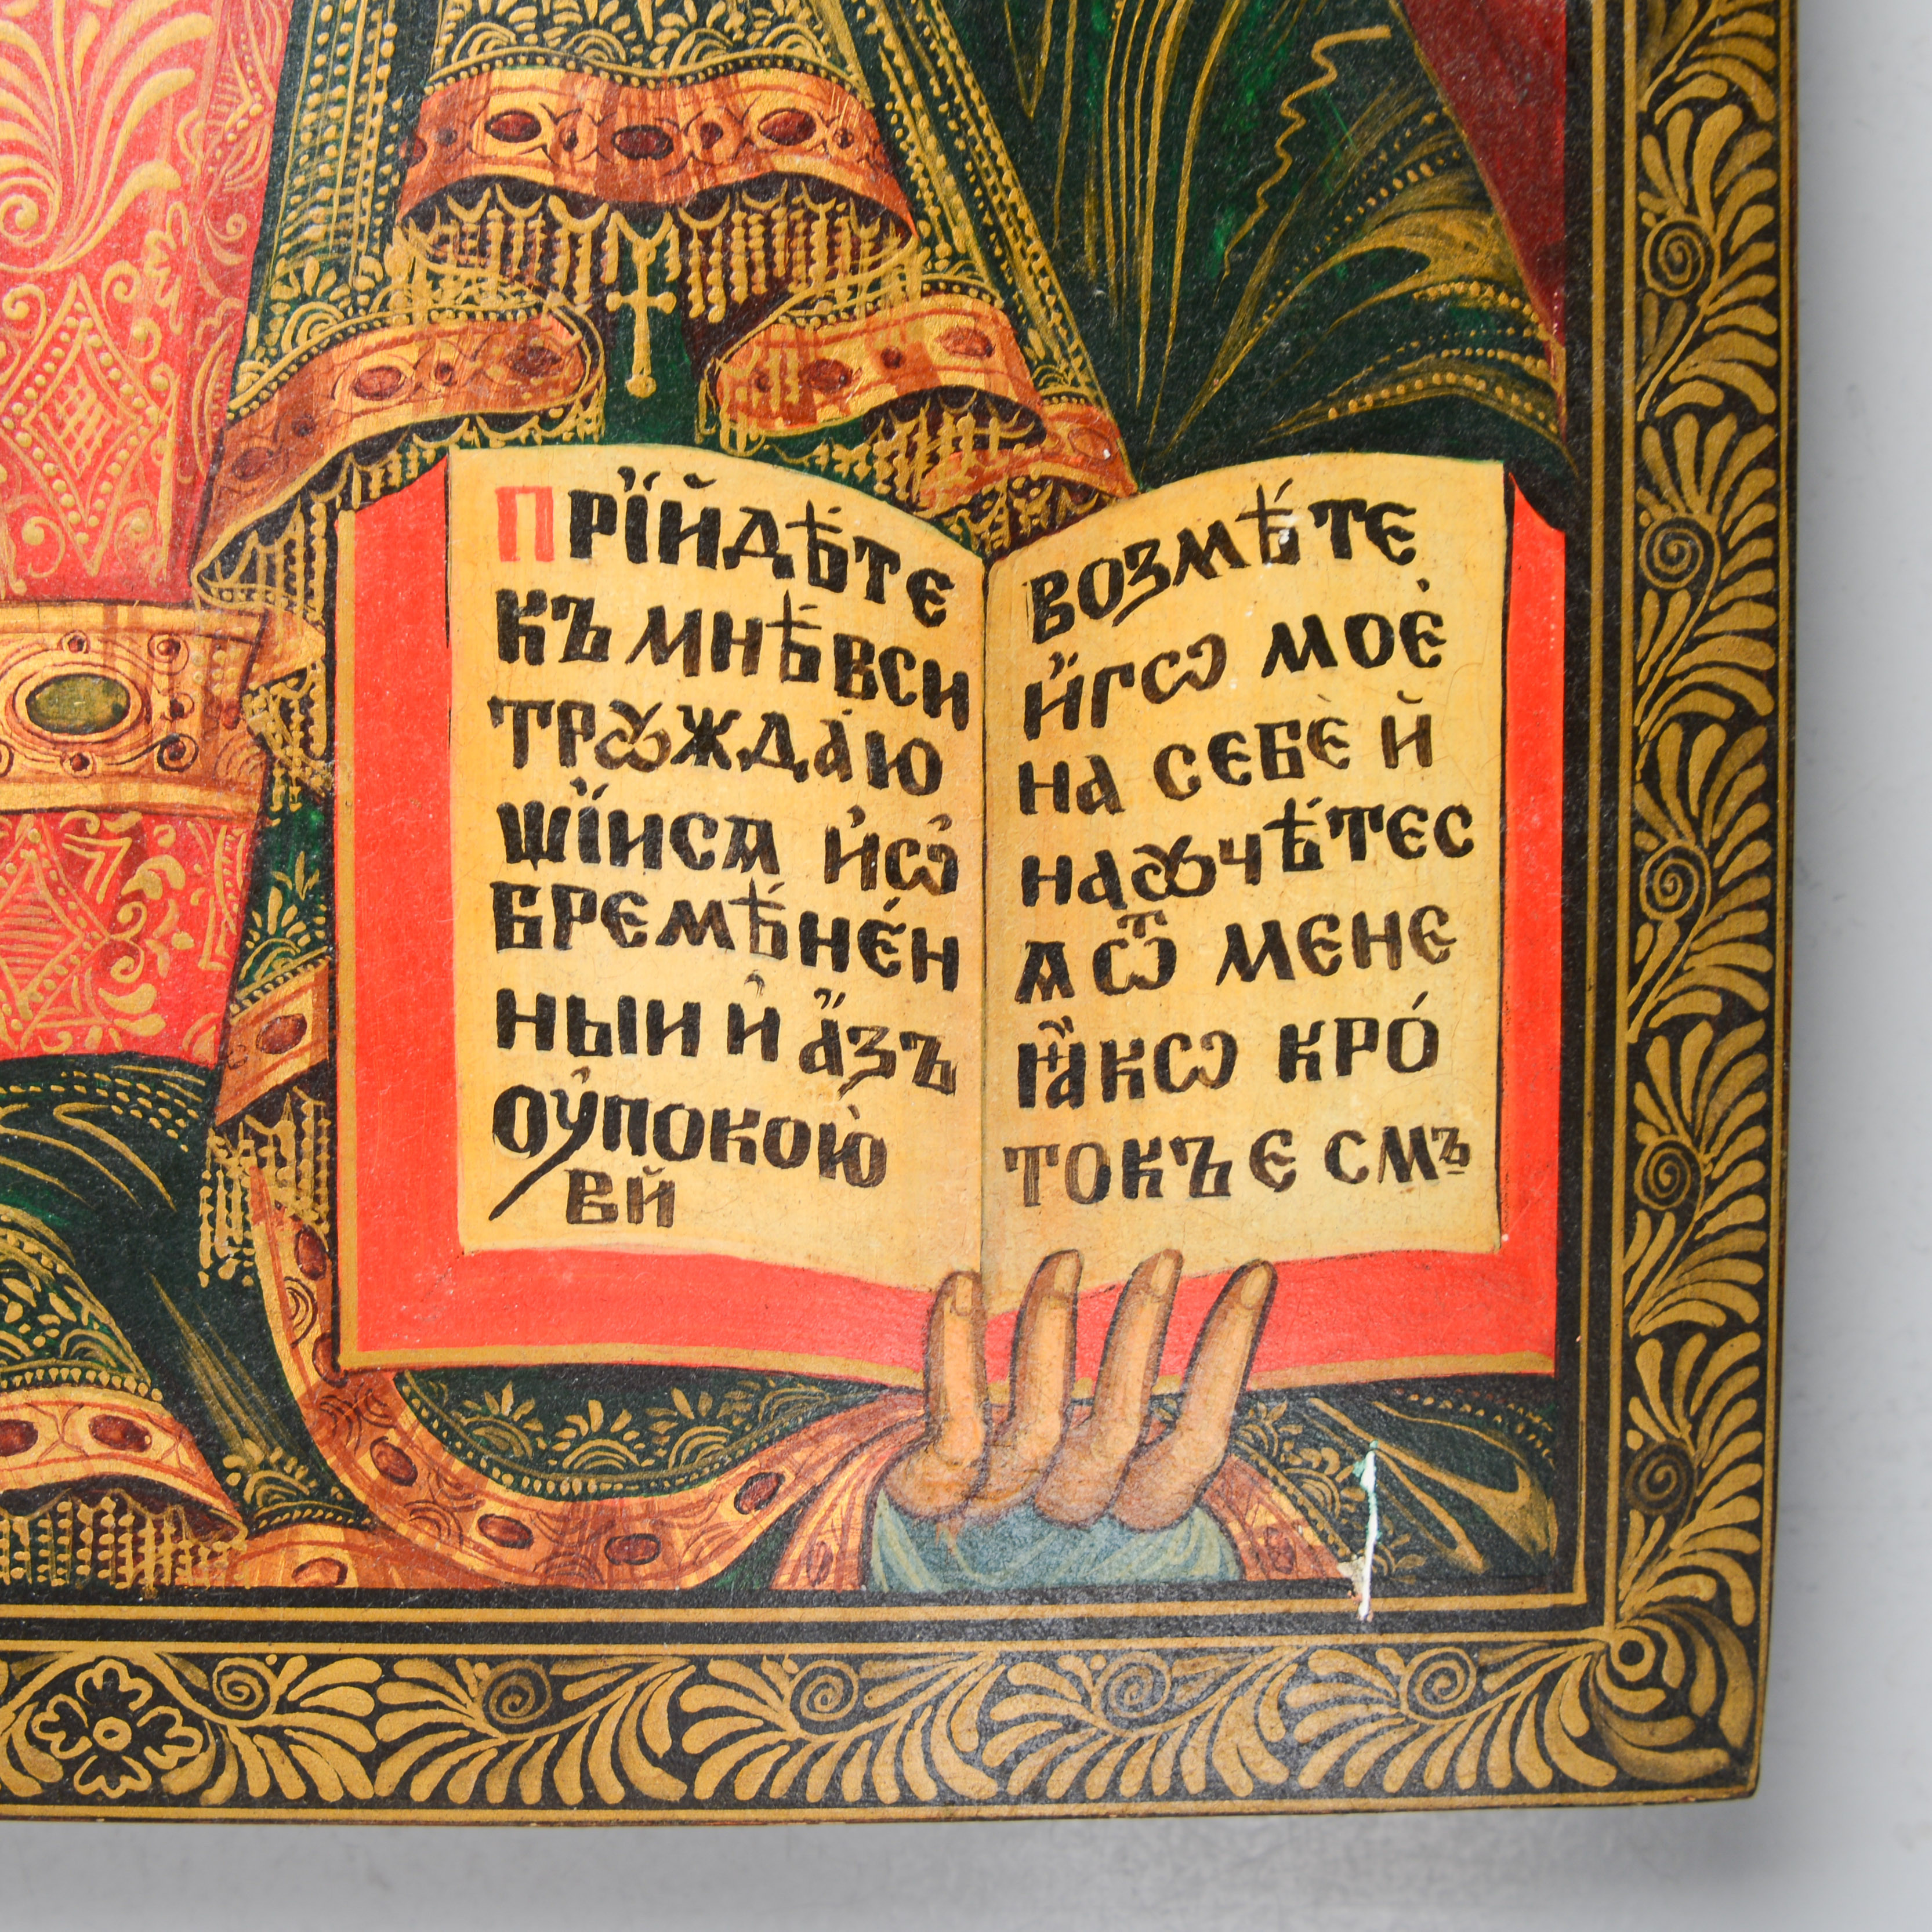 Прїйдѣте
къ мнѣ вси
трꙋждаю
щїися и҆ ѡ҆
бремѣне́н
ныи и҆ а҆́зъ
оу҆покою̀
вй
возмѣ́те
и҆́гѡ мое̇
на себѐ й
наꙋчѣ́тес
ѧ ѿ мене
ꙗ҆́кѡ кро́
токъ є смъ